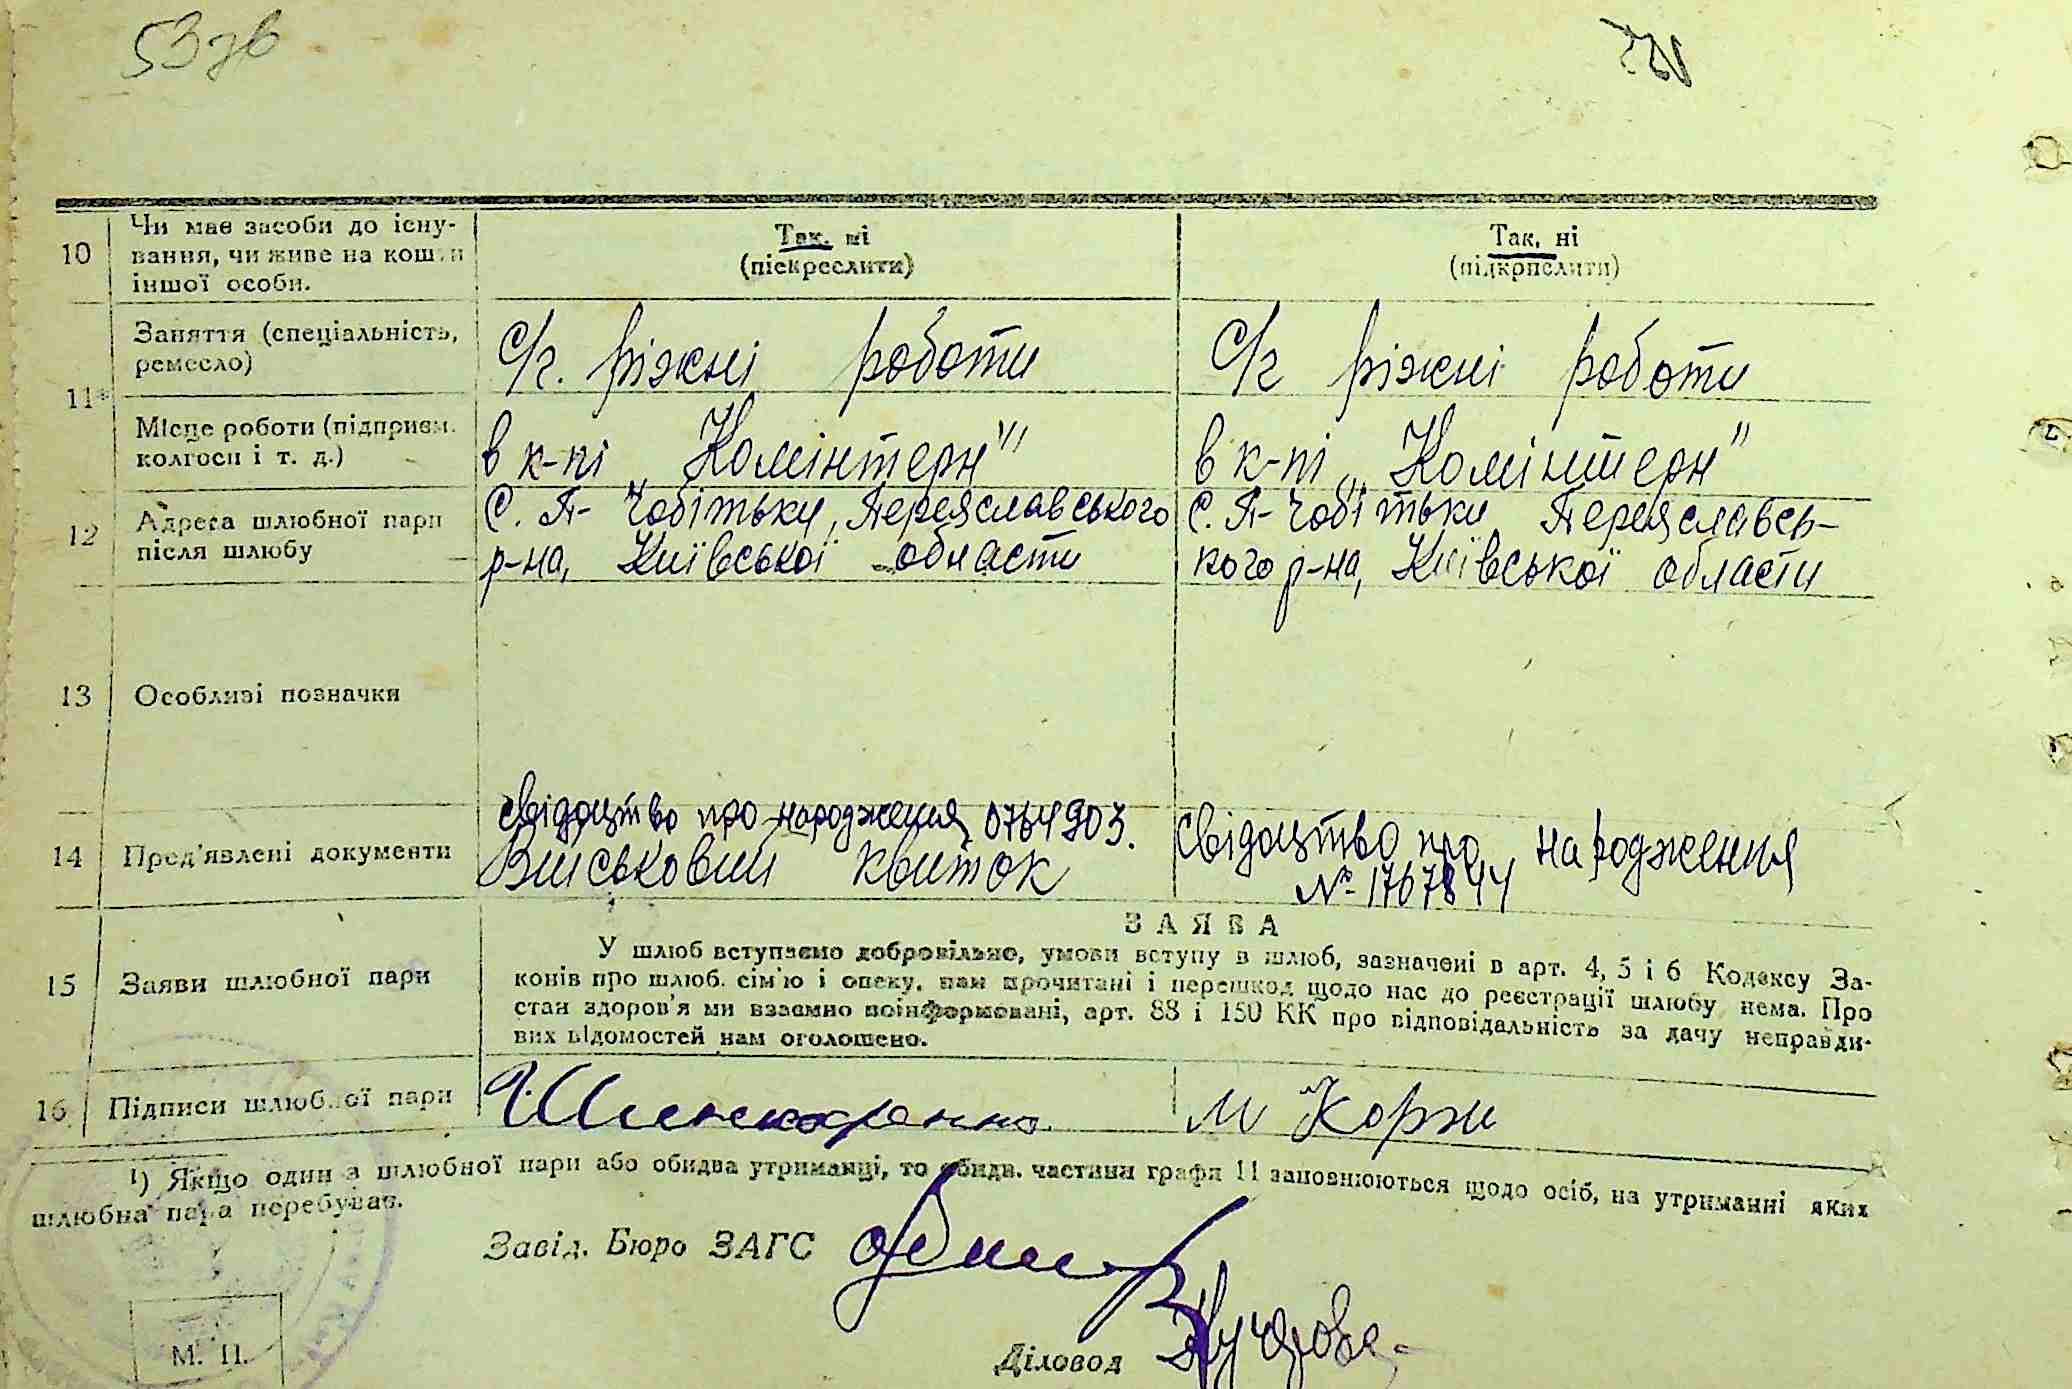 53зв
№
10 Чи має засоби до існу-
вання, чи живе на кошти
іншої особи.
Так. ні
(підкреслити)
Так, ні
(підкрислити)
11 Заняття (спеціальність,
ремесло)
С/г. ріжні роботи
С/г ріжні роботи
Місце роботи (підприєм.
колгосп і т. д.)
в к-пі „Комінтерн"
в к-пі „Комінтерн"
12 Адреса шлюбної пари
після шлюбу
С. П- Чобітьки, Переяславського
р-на, Київської области
С. П- Чобітьки Переяславсь-
кого р-на, Київської области
13 Особливі позначки
14 Пред'явлені документи
свідоцтво про народження 0764903.
Військовий квиток
Свідоцтво про народження
№ 1767844
15 Заяви шлюбної пари
ЗАЯВА
У шлюб вступаємо добровільно, умови вступу в шлюб, зазначені в арт. 4, 5 і 6 Кодексу За-
конів про шлюб. сім'ю і опеку. нам прочитані і перешкод щодо нас до реєстрації шлюбу нема. Про
стан здоров'я ми взаємно поінформовані, арт. 88 і 150 КК про відповідальність за дачу неправди-
вих відомостей нам оголошено.
16 Підписи шлюбної пари
М Корж
¹) Якщо один з шлюбної пари або обидва утриманці, то обидв. частини графи 11 заповнюються щодо осіб, на утриманні яких
шлюбна пара перебуває.
Завід. Бюро ЗАГС
Діловод
М. П.